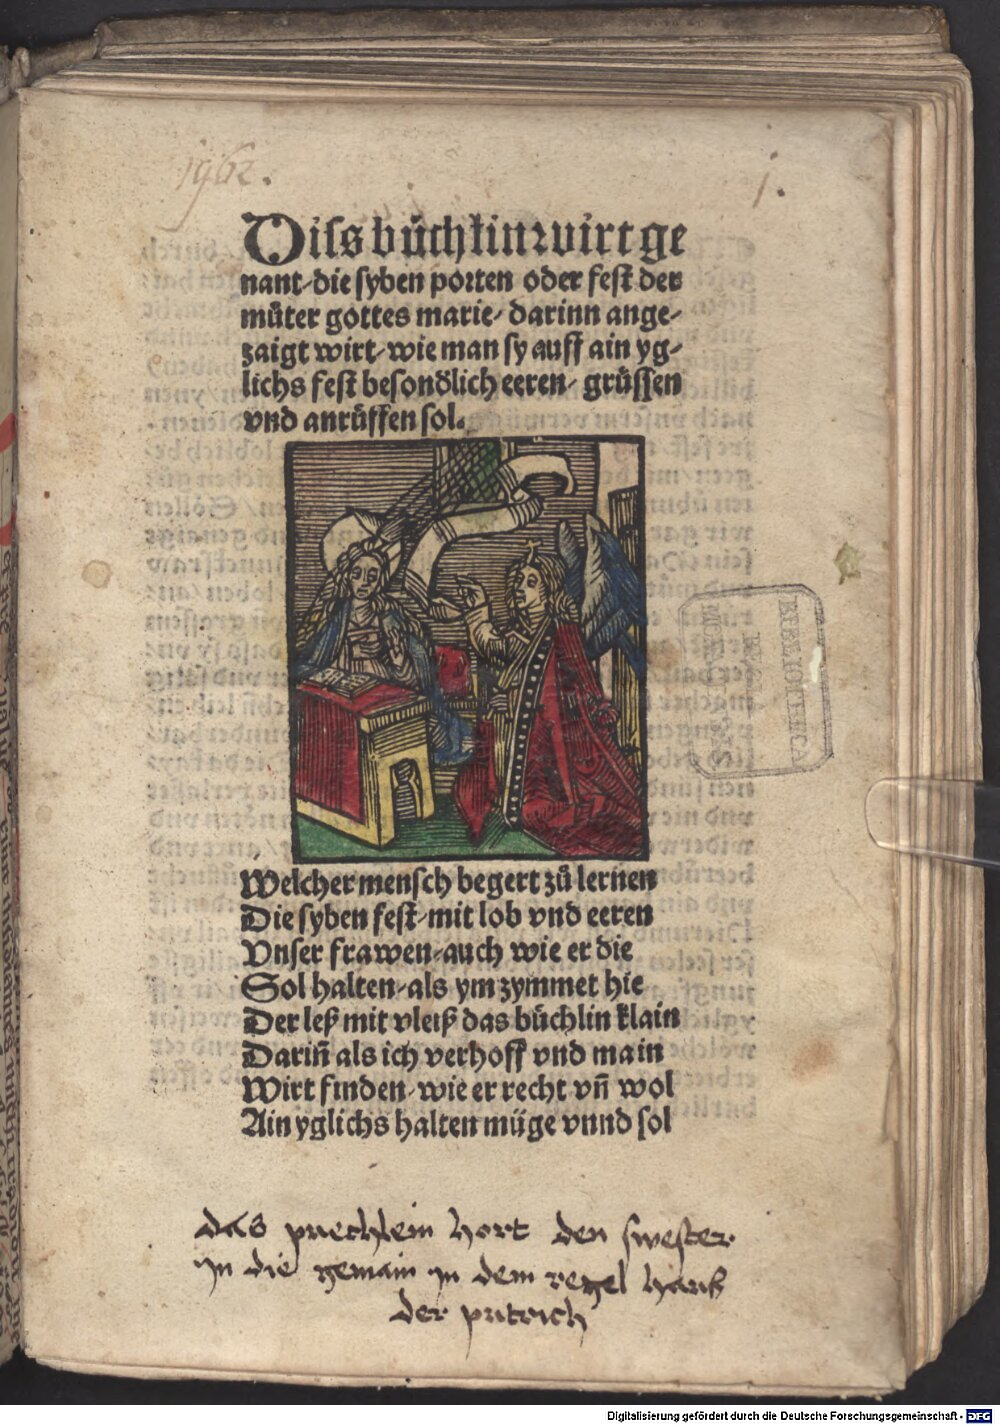 1962. 1.
Diss bůchlin wirt ge
nant/die syben porten oder fest der
můter gottes marie/ darinn ange/
zaigt wirt/wie man sy auff ain yg/
lichs fest besondlich eeren/ grüssen
vnd anrůffen sol.
Welcher mensch begert zů lernen
Die syben fest/mit lob vnd eeren
Vnser frawen/auch wie er die
Sol halten/als ym zymmet hie
Der leß mit vleiß das bůchlin klain
Dariñ als ich verhoff vnd main
Wirt finden/wie er recht vñ wol
Ain yglichs halten müge vnnd sol
BIBLIOTHECA
REGIA
MONACENSIS
das puechlein hort den swester
in die gemain in dem regel hauß
der pütrich
Digitalisierung gefördert durch die Deutsche Forschungsgemeinschaft - DFG